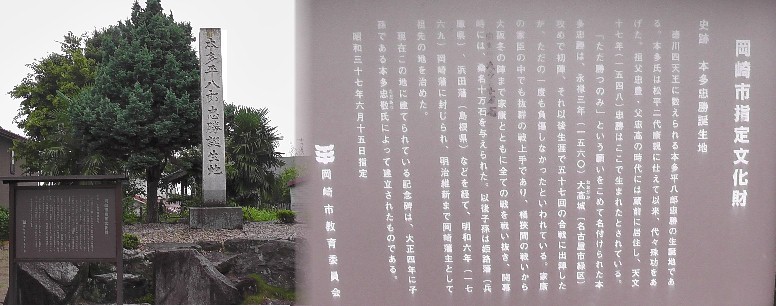 本多平八郎忠勝誕生地
岡崎市指定文化財
史跡　本多忠勝誕生地
徳川四天王に数えられる本多平八郎忠勝の生誕地であ
る。本多氏は松平二代泰親に仕えて以来、代々殊功をあ
げた。祖父忠豊・父忠高の時代には蔵前に居住し、天文
十七年（一五四八）忠勝はここで生まれたとされている。
「ただ勝つのみ」という願いをこめて名付けられた本
多忠勝は、永禄三年（一五六〇）大高城（名古屋市緑区）
攻めで初陣、それ以後生涯で五十七回の合戦に出陣した
が、ただの一度も負傷しなかったといわれている。家康
の家臣の中でも抜群の戦上手であり、桶狭間の戦いから
大阪冬の陣まで家康とともに全ての戦を戦い抜き、開幕
時には、桑名十万石を与えられた。以後子孫は姫路藩（兵
庫県）、浜田藩（島根県）などを経て、明和六年（一七
六九）岡崎藩に封じられ、明治維新まで岡崎藩主として
祖先の地を治めた。
現在この地に建てられている記念碑は、大正四年に子
孫である本多忠敬氏によって建立されたものである。
昭和三十七年六月十五日指定
岡崎市教育委員会